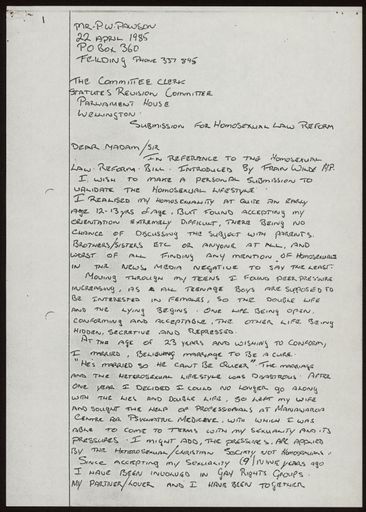 1
MR. P.W. DAWSON
22 APRIL 1985
PO BOX 360
FEILDING PHONE 337 845
THE COMMITTEE CLERK
STATUTES REVISION COMMITTEE
PARLIAMENT HOUSE
WELLINGTON
SUBMISSION FOR HOMOSEXUAL LAW REFORM
DEAR MADAM/SIR
IN REFERENCE TO THE HOMOSEXUAL
LAW REFORM BILL INTRODUCED BY FRAN WILDE M.P.
I WISH TO MAKE A PERSONAL SUBMISSION TO
VALIDATE THE HOMOSEXUAL LIFESTYLE.
I REALISED MY HOMOSEXUALITY AT QUITE AN EARLY
AGE 12-13 YRS OF AGE. BUT FOUND ACCEPTING MY
ORIENTATION EXTREMELY DIFFICULT, THERE BEING NO
CHANCE OF DISCUSSING THE SUBJECT WITH PARENTS.
BROTHERS/SISTERS ETC OR ANYONE AT ALL, AND
WORST OF ALL FINDING ANY MENTION OF HOMOSEXUALS
IN THE NEWS MEDIA NEGATIVE TO SAY THE LEAST.
MOVING THROUGH MY TEENS I FOUND PEER PRESSURE
INCREASING, AS ALL TEENAGE BOYS ARE SUPPOSED TO
BE INTERESTED IN FEMALES, SO THE DOUBLE LIFE
AND THE LYING BEGINS. ONE LIFE BEING OPEN,
CONFORMING AND ACCEPTABLE, THE OTHER LIFE BEING
HIDDEN, SECRETIVE AND REPRESSED.
AT THE AGE OF 23 YEARS AND WISHING TO CONFORM,
I MARRIED, BELIEVING MARRIAGE TO BE A CURE.
"HE'S MARRIED SO HE CAN'T BE QUEER" THE MARRIAGE
AND THE HETEROSEXUAL LIFESTYLE WAS DISASTROUS. AFTER
ONE YEAR I DECIDED I COULD NO LONGER GO ALONG
WITH THE LIES AND DOUBLE LIFE, SO LEFT MY WIFE
AND SOUGHT THE HELP OF PROFESSIONALS AT MANAWAROA
CENTRE FOR PSYCHIATRIC MEDICINE. WITH WHICH I WAS
ABLE TO COME TO TERMS WITH MY SEXUALITY AND ITS
PRESSURES. I MIGHT ADD, THE PRESSURES ARE APPLIED
BY THE HETEROSEXUAL/CHRISTIAN SOCIETY NOT HOMOSEXUALS.
SINCE ACCEPTING MY SEXUALITY (9) NINE YEARS AGO
I HAVE BEEN INVOLVED IN GAY RIGHTS GROUPS.
MY PARTNER/LOVER AND I HAVE BEEN TOGETHER